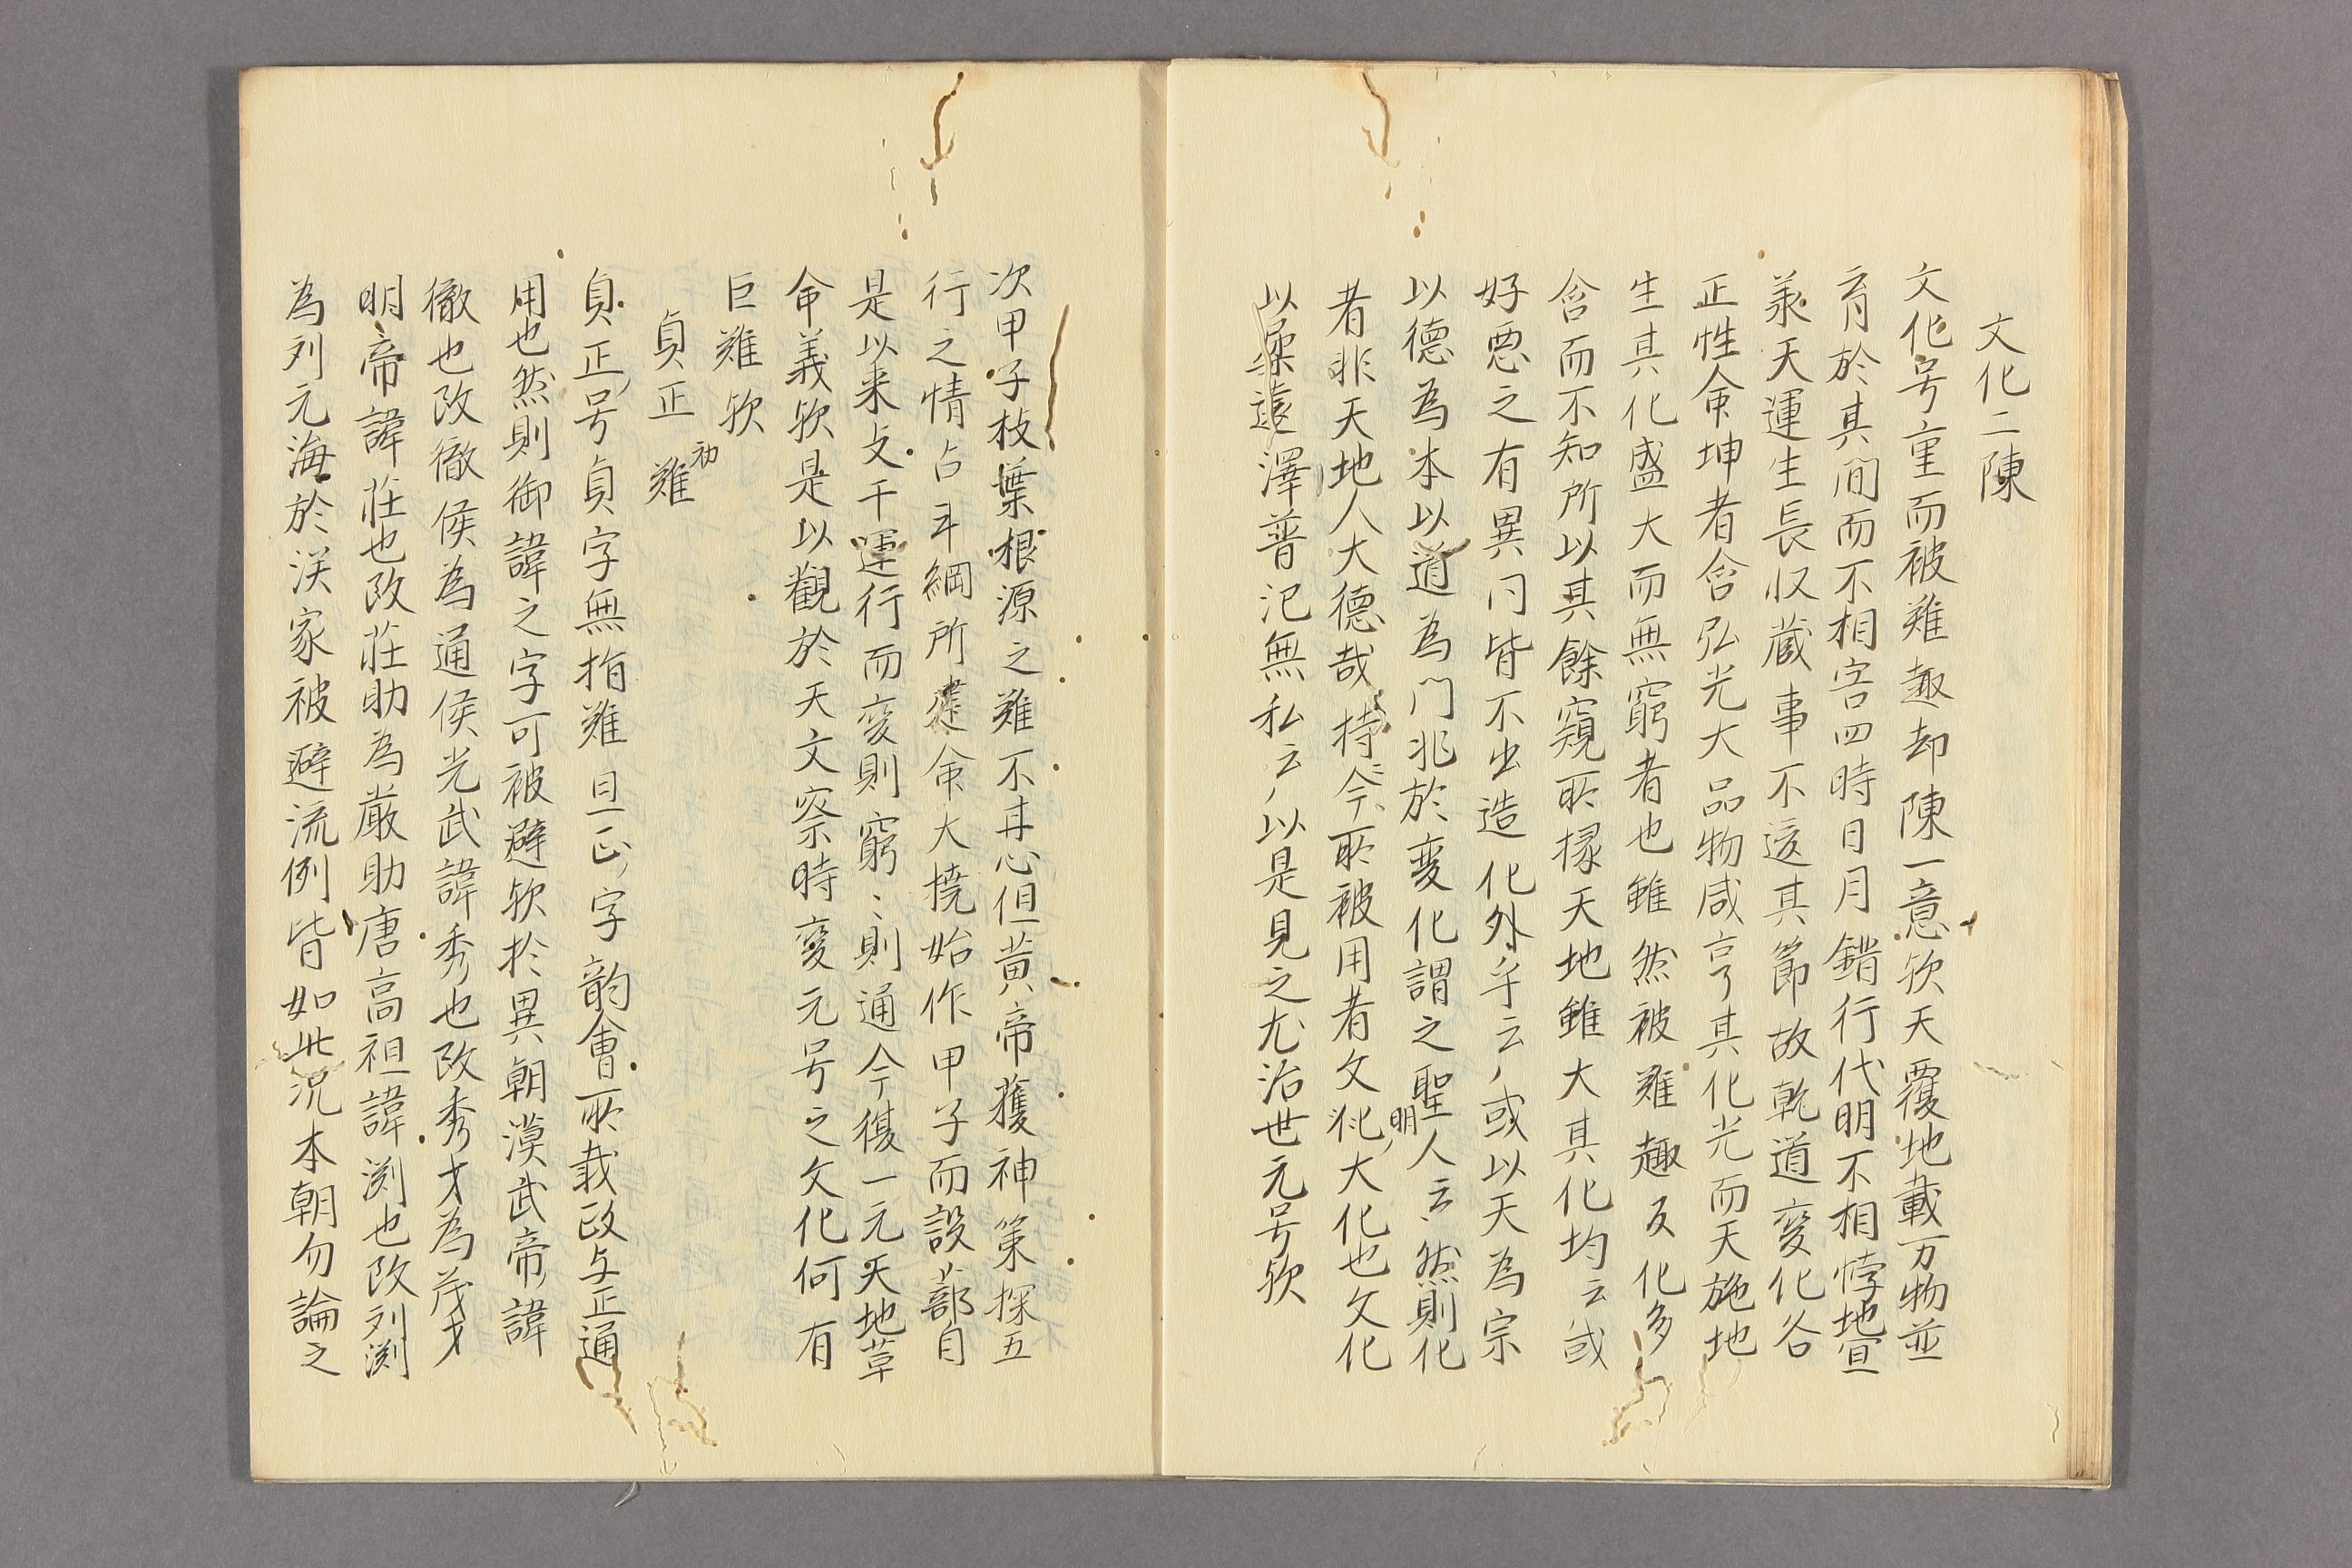 文化二陳
文化号重而被難趣却陳一意欤天覆地載万物並
育於其間而不相害四時日月錯行代明不相悖地宜
承天運生長収蔵事不違其節故乾道変化各
正性命坤者含弘光大品物咸亨其化光而天施地
生其化盛大而無窮者也雖然被難趣及化多
含而不知所以其餘窺所掾天地雖大其化均云或
好悪之有異同皆不出造化外乎云々或以天為宗
以徳為本以道為門兆於変化謂之聖人云々然則化
者非天地人大徳哉持今所被用者文化明大化也文化
以柔遠澤普氾無私云々以是見之尤治世元号欤
次甲子枝葉根源之難不甘心但黄帝獲神策探五
行之情占斗綱所建命大撓始作甲子而設蔀自
是以来支干運行而変則窮〻則通今復一元天地革
命義欤是以觀於天文察時変元号之文化何有
巨難欤
貞正 初難
貞正号貞字無指難且正字韵會所載政与正通
用也然則御諱之字可被避欤於異朝漢武帝諱
徹也改徹侯為通侯光武諱秀也改秀才為茂才
明帝諱荘也改荘助為厳助唐高祖諱渕也改列渕
為列元海於漢家被避流例皆如此况本朝勿論之